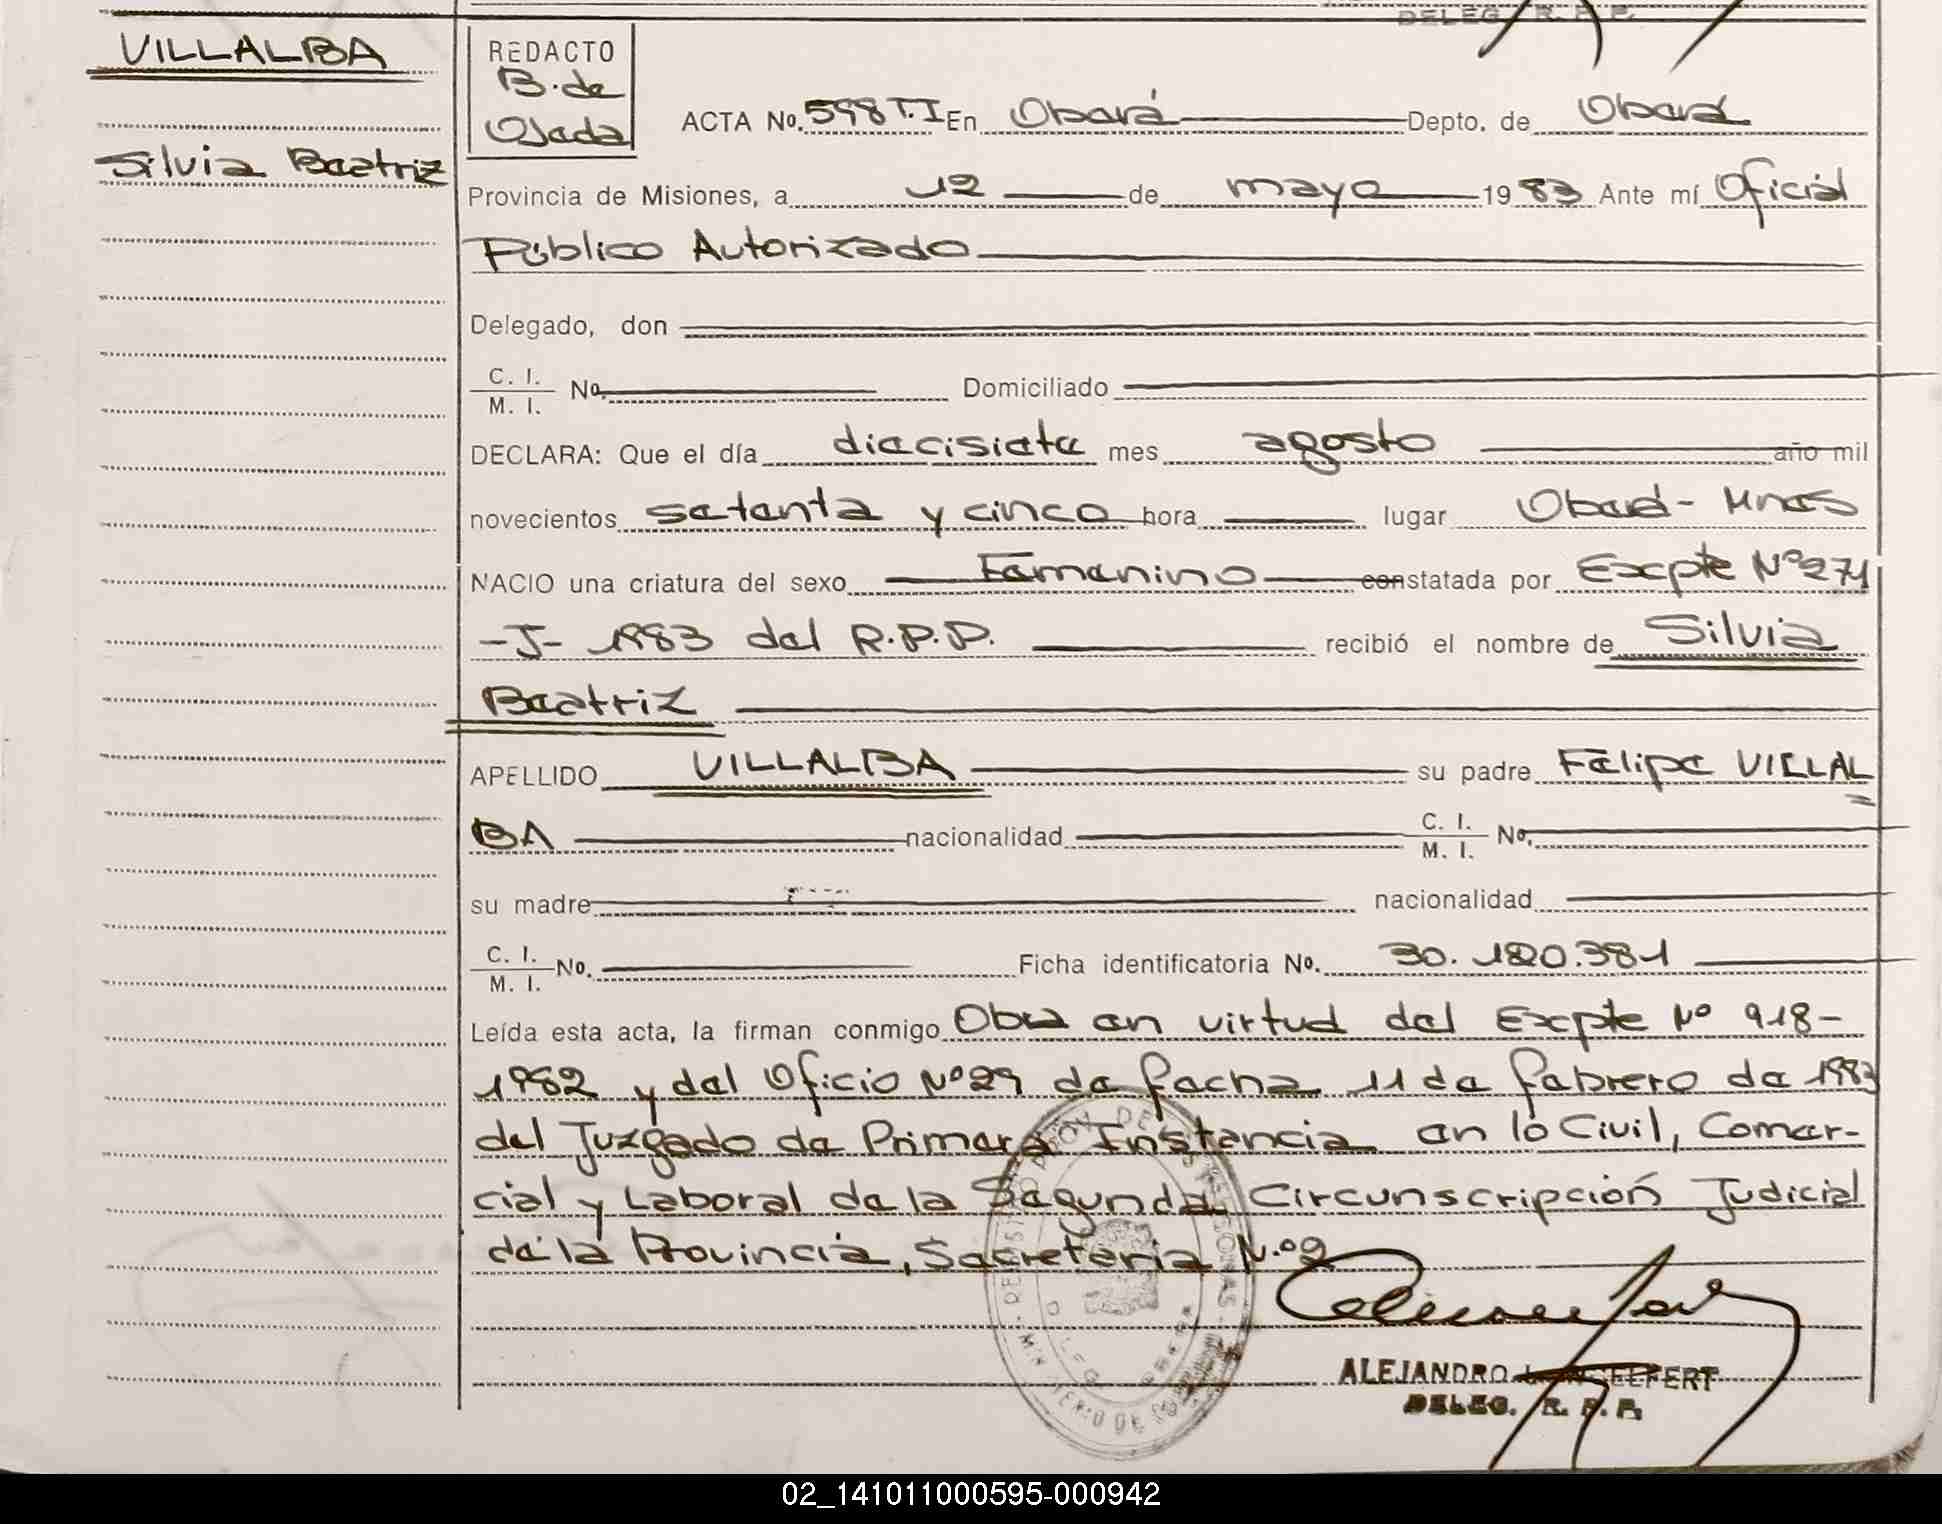 DELEG. R. P. P.
VILLALBA
Silvia Beatriz
REDACTO
B. de
Ojeda
ACTA No. 598 T.I En Oberá Depto. de Oberá
Provincia de Misiones, a 12 de mayo 1983 Ante mí Oficial
Público Autorizado
Delegado, don
C. I. / M. I. No. Domiciliado
DECLARA: Que el día diecisiete mes agosto año mil
novecientos setenta y cinco hora lugar Oberá- Mnes
NACIO una criatura del sexo Femenino constatada por Excpte Nº 271
-J- 1983 del R.P.P. recibió el nombre de Silvia
Beatriz
APELLIDO VILLALBA su padre Felipe VILLAL
BA nacionalidad C. I. / M. I. No.
su madre nacionalidad
C. I. / M. I. No. Ficha identificatoria No. 30.180.381
Leída esta acta, la firman conmigo Obra en virtud del Excpte Nº 918-
1982 y del Oficio Nº 29 de fecha 11 de febrero de 1983
del Juzgado de Primera Instancia en lo Civil, Comer-
cial y Laboral de la Segunda Circunscripción Judicial
de la Provincia, Secretería N.º 2
ALEJANDRO
DELEG. R. P. P.
02_141011000595-000942